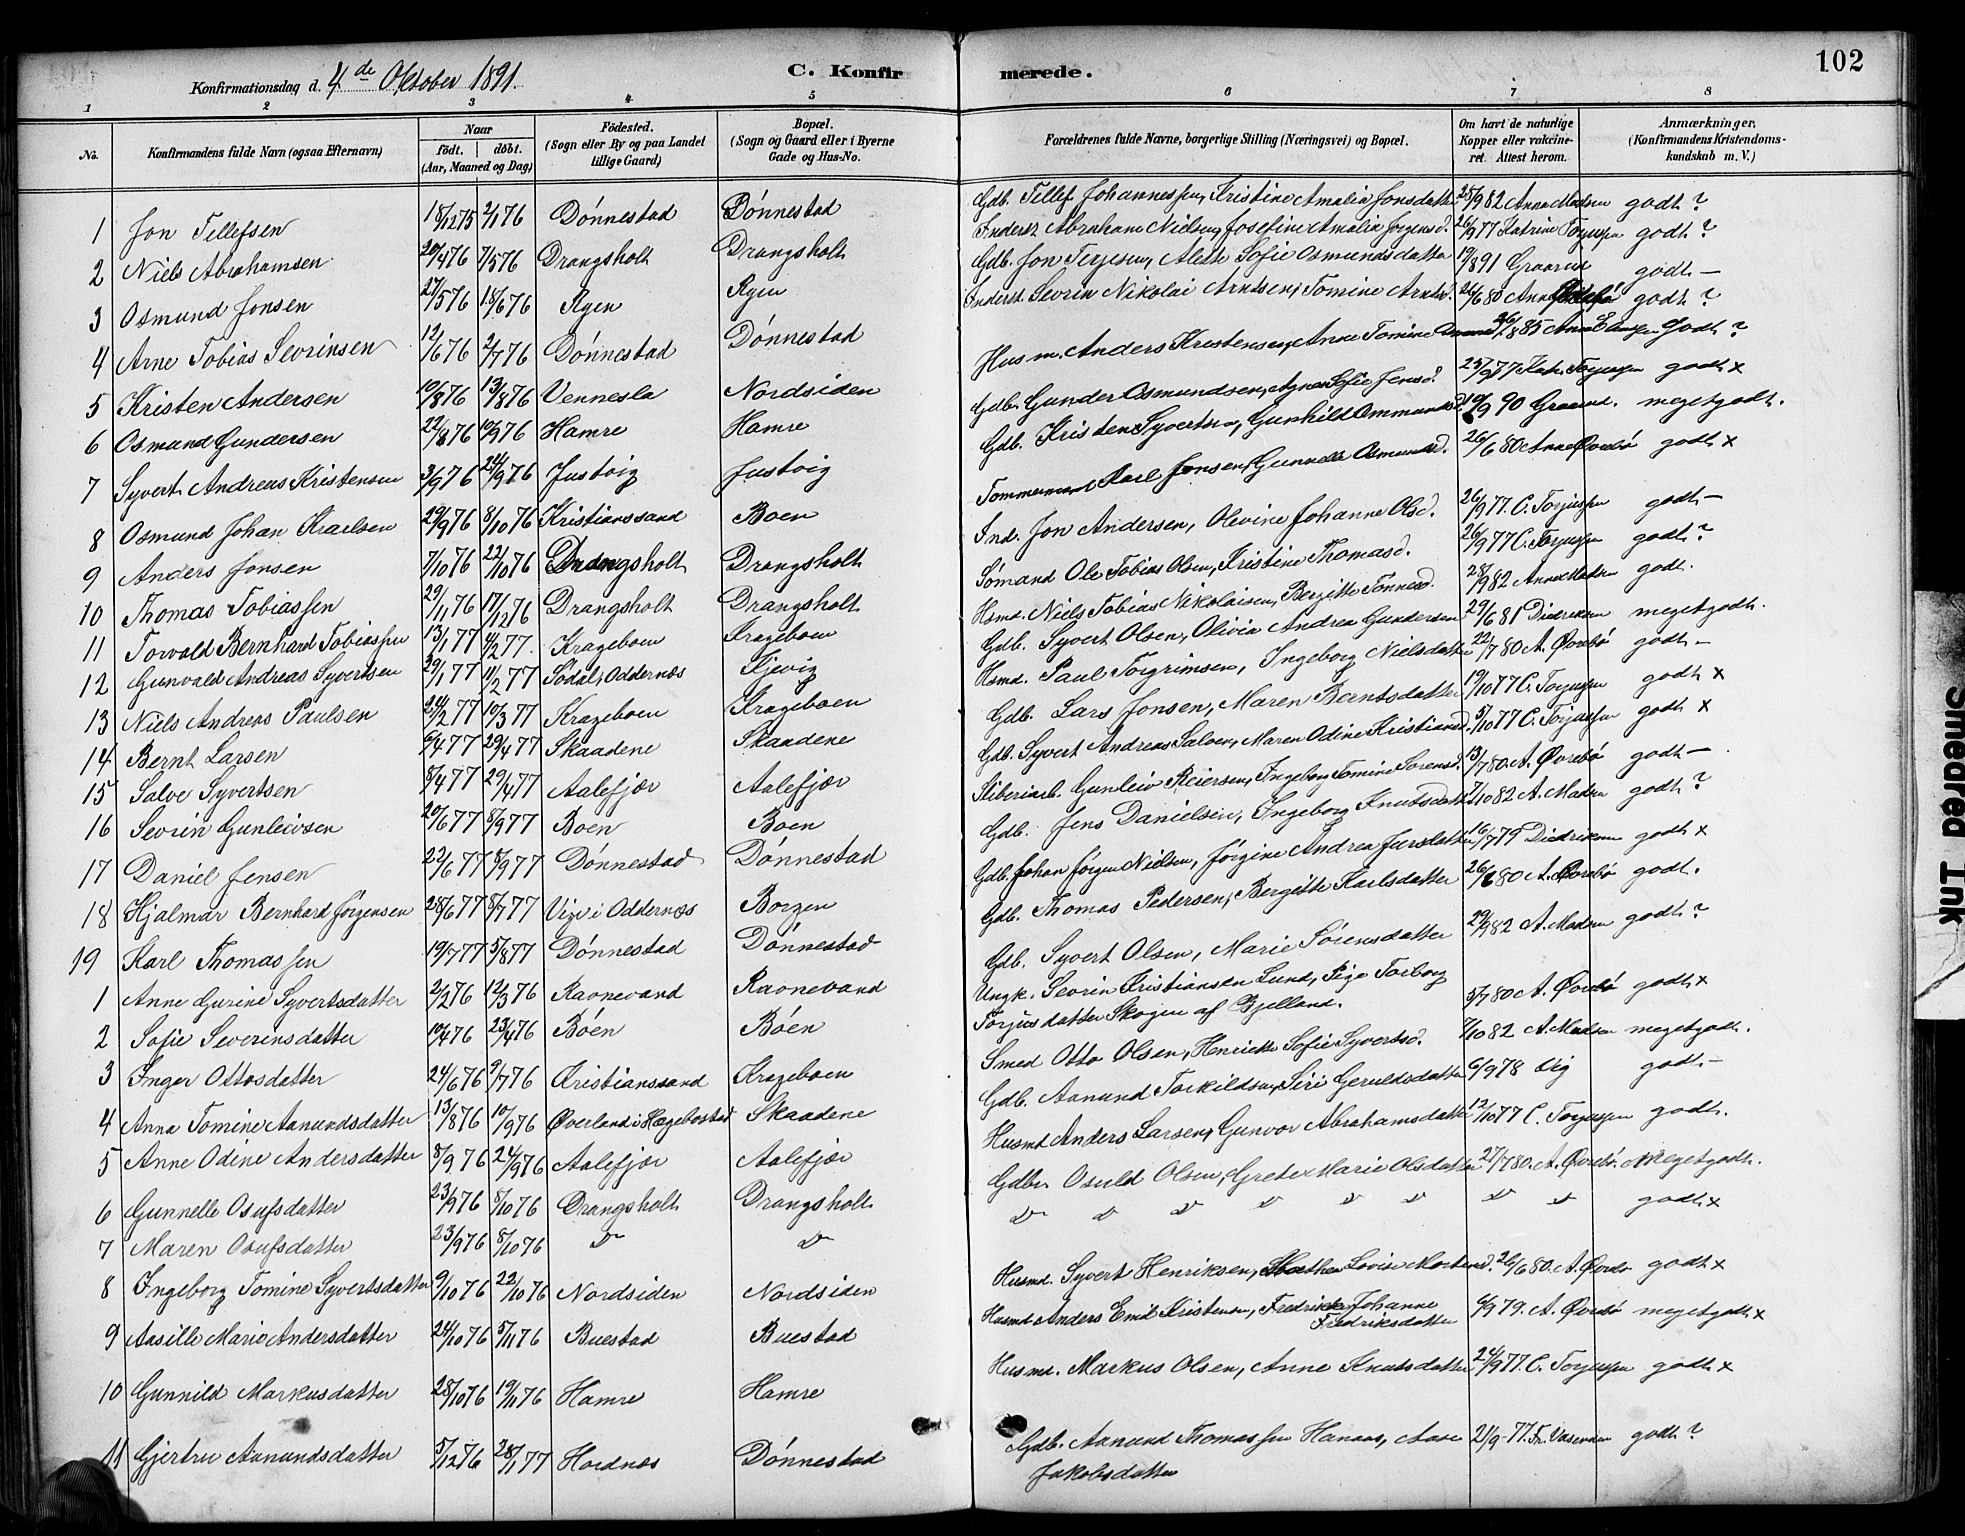 102
Konfirmationsdag d. 4de Oktober 1891. C. Konfirmerede.
1 2 3 4 5 6 7 8
No. Konfirmandens fulde Navn (ogsaa Efternavn) Naar født. døbt. (Aar, Maaned og Dag) Fødested. (Sogn eller By og paa Landet tillige Gaard) Bopæl. (Sogn og Gaard eller i Byerne Gade og Hus-No. Forældrenes fulde Navne, borgerlige Stilling (Næringsvei) og Bopæl. Om havt de naturlige Kopper eller vakcineret. Attest herom. Anmærkninger. (Konfirmandens Kristendomskundskab m. V.)
1 Jon Tellefsen 18/12 75 2/1 76 Dønnestad Dønnestad Gdb. Tellef Johannessen, Kristine Amalia Jonsdatter 25/9 82 Anna Madsen godt ?
2 Niels Abrahamsen 20/4 76 7/5 76 Drangsholt Drangsholt Inderst Abraham Nielsen, Josefine Amalia Jørgensd. 26/9 77 Katrine Torjussen godt ?
3 Osmund Jonsen 27/5 76 18/6 76 Ryen Ryen Gdb. Jon Terjesen, Alette Sofie Osmundsdatter 19/8 91 Graarud godt —
4 Arne Tobias Sevrinsen 12/6 76 2/7 76 Dønnestad Dønnestad Inderst. Sevrin Nikolai Arntsen, Tomine Arntsd. 26/6 80 Anne Øvrebø godt ?
5 Kristen Andersen 10/8 76 13/8 76 Vennesla Nordsiden Husm. Anders Kristensen, Anne Tomine 26/8 85 Anna godt ?
6 Osmund Gundersen 22/8 76 10/9 76 Hamre Hamre Gdb. Gunder Osmundsen, Agnes Sofie Jensd. 25/9 77 Katr. Torjussen godt x
7 Syvert Andreas Kristensen 3/9 76 24/9 76 Justvig Justvig Gdb. Kristen Syvertsen, Gunhild Ommundsd. 19/9 90 Graarud. megetgodt.
8 Osmund Johan Karlsen 29/9 76 8/10 76 Kristianssand Boen Tømmermand Karl Jonsen, Gunnelle Osmundsd. 26/6 80 Anne Øvrebø godt x
9 Anders Jonsen 7/10 76 22/10 76 Drangsholt Drangsholt Ind. Jon Andersen, Olevine Johanne Olsd. 26/9 77. C. Torjussen godt —
10 Thomas Tobiassen 29/11 76 17/12 76 Drangsholt Drangsholt Sømand Ole Tobias Olsen, Kristine Thomasd. 26/9 77 C. Torjussen godt ?
11 Torvald Bernhard Tobiassen 13/1 77 4/2 77. Krageboen Krageboen Hsmd. Niels Tobias Nikolaisen, Bergitte Tønnesd. 28/9 82 Anna Madsen godt.
12 Gunvald Andreas Syvertsen 29/1 77 11/2 77 Sødal, Oddernæs Kjevig Gdb. Syvert Olsen, Olivia Andrea Gundersen 29/6 81 Didriksen megetgodt.
13 Niels Andreas Paulsen 24/2 77 10/3 77 Krageboen Krageboen Hsmd. Paul Torgrimsen, Ingeborg Nielsdatter 22/7 80 A. Øvrebø godt —
14 Bernt Larsen 6/4 77 29/4 77 Skaadene Skaadene Gdb. Lars Jonsen, Maren Berntsdatter 19/10 77 C. Torjussen godt x
15 Salve Syvertsen 8/4 77 29/4 77 Aalefjær Aalefjær Gdb. Syvert Andreas Salvesen, Maren Odine Kristiansd. 5/10 77 C. Torjussen godt x
16 Sevrin Gunleivsen 20/6 77 8/9 77 Boen Boen Sliberiarb. Gunleiv Reiersen, Ingeborg Tomine Sørensd. 13/7 80. A. Øvrebø godt —
17 Daniel Jensen 22/6 77 8/9 77 Dønnestad Dønnestad Gdb. Jens Danielsen, Ingeborg Knutsdatter 7/10 82 A. Madsen godt ?
18 Hjalmar Bernhard Jørgensen 28/6 77 8/7 77 Vige i Oddernæs Borgen Gdb. Johan Jørgen Nielsen, Jørgine Andrea Jensdatter 16/7 79 Didriksen godt x
19 Karl Thomassen 19/7 77 5/8 77 Dønnestad Dønnestad Gdb. Thomas Pedersen, Bergitte Karlsdatter 26/6 80 A. Øvrebø godt.
1 Anne Gurine Syvertsdatter 2/2 76 12/3 76 Ravnevand Ravnevand Gdb. Syvert Olsen, Marie Sørensdatter 29/9 82 A. Madsen godt ?
2 Sofie Severinsdatter 10/4 76 23/4 76 Bøen Bøen Ungk. Sevrin Kristiansen Lund, Pige Torborg
Torjusdatter Skogen af Bjelland. 5/7 80 A. Øvrebø godt x
3 Inger Ottosdatter 24/6 76 9/7 76 Kristianssand Krageboen Smed Otto Olsen, Henriette Sofie Syvertsd. 7/10 82 A. Madsen megetgodt.
4 Anna Tomine Aanundsdatter 13/8 76 10/9 76 Øverland i Hægebostad Skaadene Gdb. Aanund Torkildsen, Siri Geruldsdatter 6/9 78 godt —
5 Anne Odine Andersdatter 8/9 76 24/9 76 Aalefjær Aalefjær Husmd Anders Larsen, Gunvor Abrahamsdatter 12/10 77 C. Torjussen godt.
6 Gunnelle Osufsdatter 23/9 76 8/10 76 Drangsholt Drangsholt Gdbr. Osuld Olsen, Grete Marie Olsdatter 27/7 80. A. Øvrebø. Megetgodt.
7 Maren Osufsdatter 23/9 76 8/10 76 " " " " " " " " " " godt x
8 Ingeborg Tomine Syvertsdatter 9/10 76 22/10 76 Nordsiden Nordsiden Husmd. Syvert Henriksen, Lovise 26/6 80. A. Øvrebø godt x
9 Aasille Marie Andersdatter 24/10 76 5/11 76 Buestad Buestad Husmd Anders Emil Kristensen, Fredrikke Johanne
Fredriksdatter 6/9 79. A. Øvrebø megetgodt x
10 Gunnild Markusdatter 28/10 76 19/11 76 Hamre Hamre Husmd. Markus Olsen, Anne Knutsdatter 24/9 77. C. Torjussen godt x
11 Gjertru Aanundsdatter 5/12 76 28/1 77 Hordnæs Dønnestad Gdb. Aanund Thomassen Hanaas, Aase
Jakobsdatter 21/9 - 77. Fr. godt ?
Smeared Ink